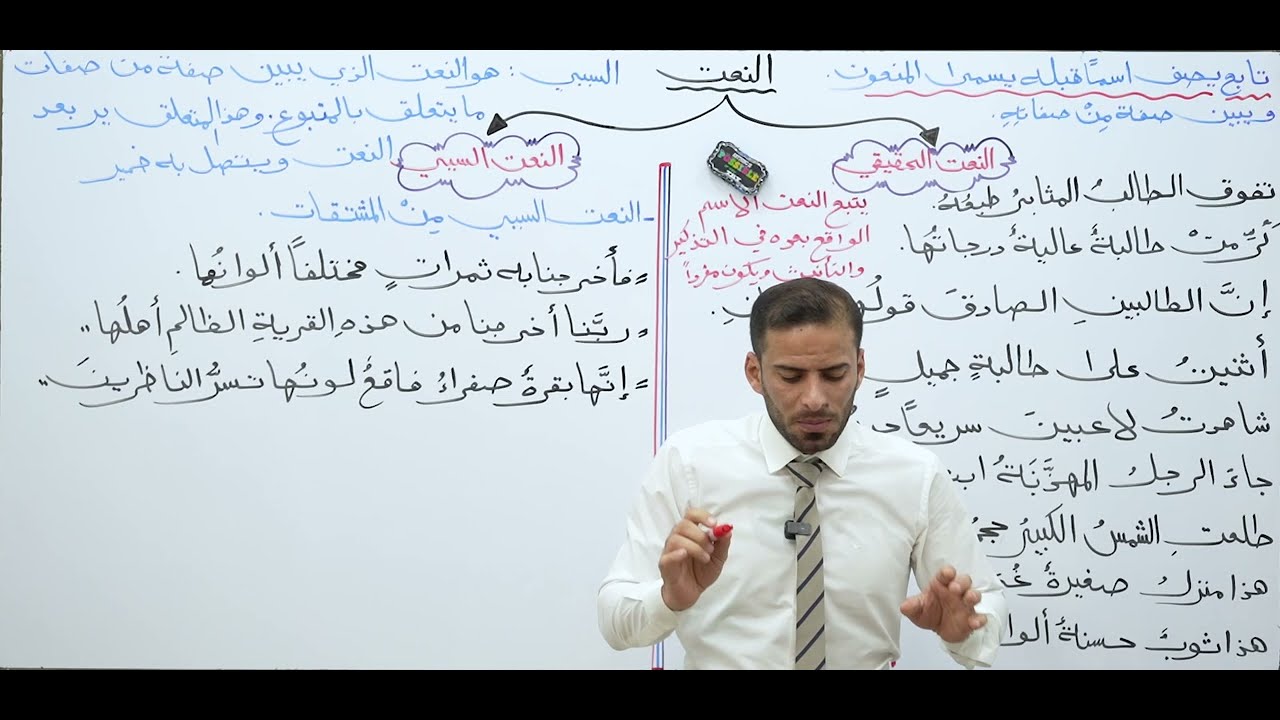 النعت
تابع يصف اسماً قبله يسمى المنعوت.
ويبين صفة مِنْ صفاتهِ.
النعت الحقيقي
يتبع النعت الاسم
الواقع بعده في التذكير
والتأنيث ويكون مفرداً
تفوق الطالبُ المثابرُ طبعُهُ.
كُرِّمتْ طالبةٌ عاليةٌ درجاتُها.
إنَّ الطالبينِ الصادقَ
أثنيتُ على طالبةٍ جميلٍ
شاهدتُ لاعبينَ سريعاً
جاءَ الرجلُ المهذَّبَةُ
طلعتِ الشمسُ الكبيرُ
هذا منزلٌ صغيرةٌ
هذا ثوبٌ حسنةٌ
السببي : هو النعت الذي يبين صفة من صفات
ما يتعلق بالمتبوع. وهذا المتعلق يرد بعد
النعت ويتصل به ضمير
النعت السببي
- النعت السببي مِنْ المشتقات.
" فأخرجنا به ثمراتٍ مختلفاً ألوانُها.
" ربَّنا أخرجنا من هذهِ القريةِ الظالمِ أهلُها "
" إنَّها بقرةٌ صفراءُ فاقعٌ لونُها تسرُّ الناظرينَ "